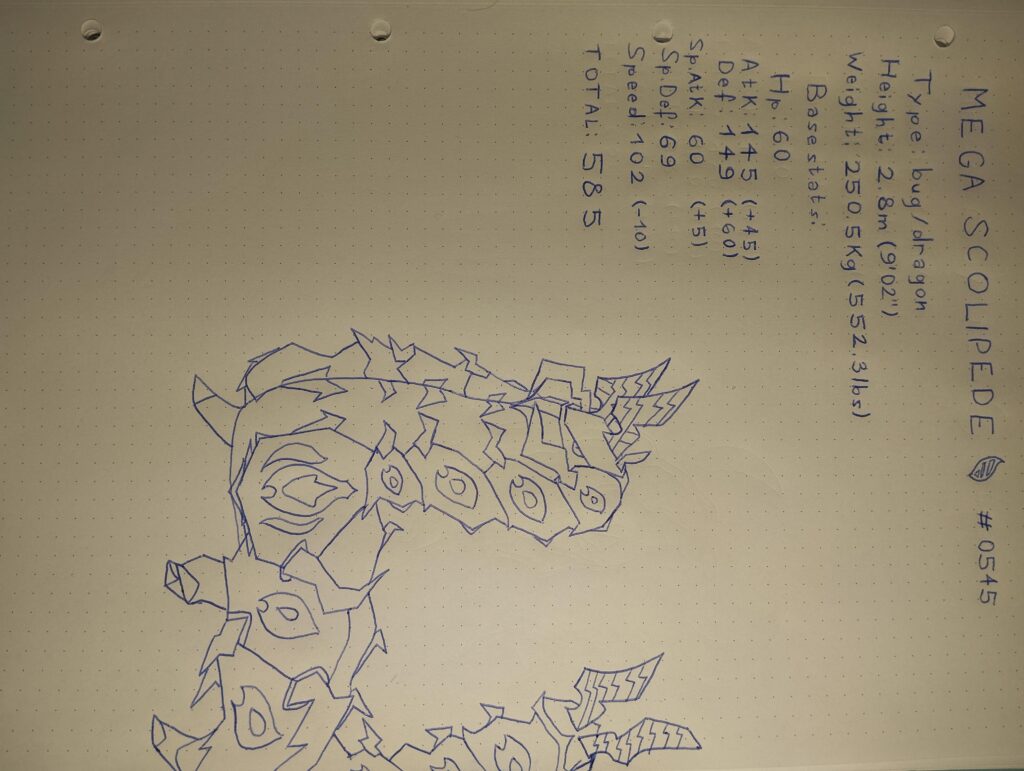 MEGA SCOLIPEDE #0545
Type: bug/dragon
Height: 2.8m (9'02")
Weight: 250.5Kg (552.3lbs)
Base stats:
Hp: 60
Atk: 145 (+45)
Def: 149 (+60)
Sp.Atk: 60 (+5)
Sp.Def: 69
Speed: 102 (-10)
TOTAL: 585